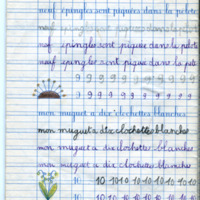 neuf épingles sont piquées dans la pelote
neuf épingles sont piquées dans la pelote
neuf épingles sont piquées dans la pelote
neuf épingles sont piquées dans la pelote
9 9 9 9 9 9 9 9 9
9 9 9 9 9 9 9 9 9
mon muguet a dix clochettes blanches
mon muguet a dix clochettes blanches
mon muguet a dix clochettes blanches
mon muguet a dix clochettes blanches
10 10 10 10 10 10 10 10 10
10 10 10 10 10 10 10 10